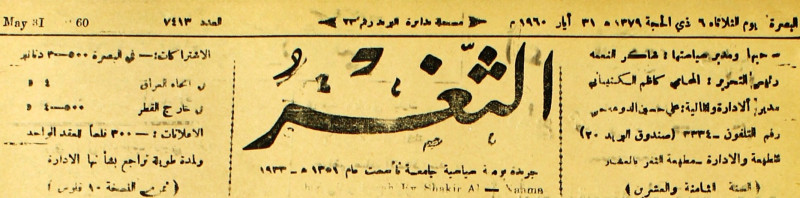 البصرة يوم الثلاثاء ٦ ذي الحجة ١٣٧٩ هـ ٣١ أيار ١٩٦٠ م
مسجلة بدائرة البريد رقم ٢٣
العدد ٧٤١٣
May 31 60
ومدير سياستها : شاكر النعمة
رئيس التحرير : المحامي كاظم
مدير الادارة والمالية : علي حسين
رقم التلفون - ٣٣٣٤ (صندوق البريد ٢٠)
المطبعة والادارة - مطبعة الثغر بالعشار
(السنة الثامنة والعشرين)
الثغر
جريدة يومية سياسية جامعة تأسست عام ١٣٥٢ هـ - ١٩٣٣
by Shakir Al - Nahma
الاشتراكات :- في البصرة ٥٠٠-٣ دنانير
انحاء العراق ٤
خارج القطر ٥٠٠-٤
الاعلانات :- ٣٠٠ فلساً للعقد الواحد
ولمدة طويلة تراجع بشأنها الادارة
(ثمن النسخة ١٠ فلوس)